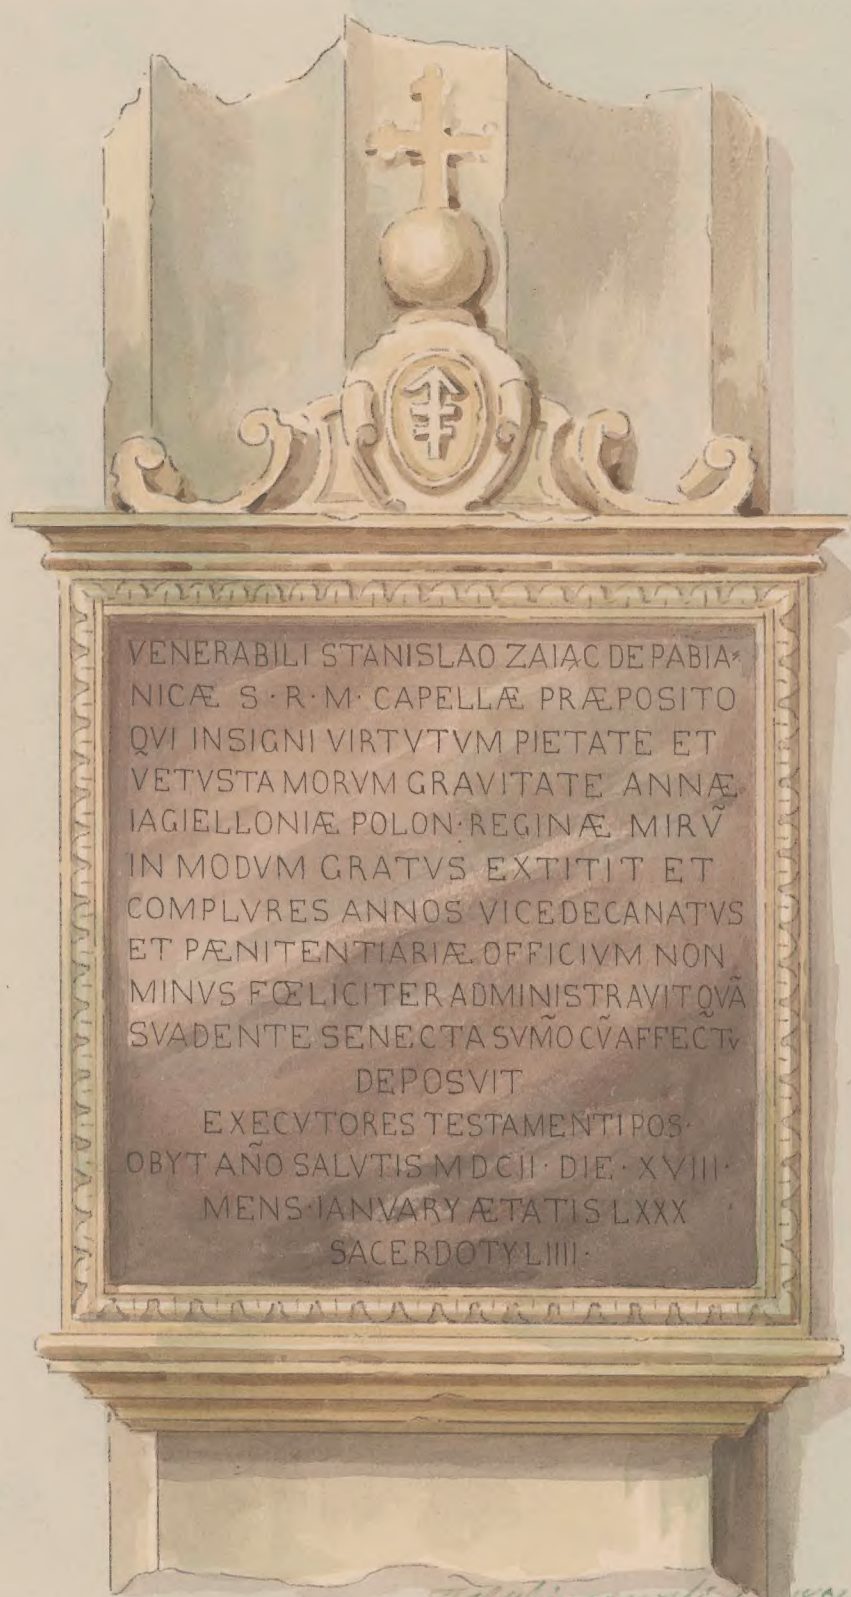 VENERABILI STANISLAO ZAIĄC DE PABIA⸗
NICÆ S·R·M· CAPELLÆ PRÆPOSITO
QVI INSIGNI VIRTVTVM PIETATE ET
VETVSTA MORVM GRAVITATE ANNÆ
IAGIELLONIÆ POLON·REGINÆ MIRṼ
IN MODVM GRATVS EXTITIT ET
COMPLVRES ANNOS VICEDECANATVS
ET PÆNITENTIARIÆ OFFICIVM NON
MINVS FŒLICITER ADMINISTRAVIT QVÃ
SVADENTE SENECTA SVM̃O CṼ AFFEC̃Tv
DEPOSVIT
EXECVTORES TESTAMENTI POS·
OBYT AÑO SALVTIS MDCII· DIE· XVIII·
MENS·IANVARY ÆTATIS LXXX
SACERDOTY LIIII·